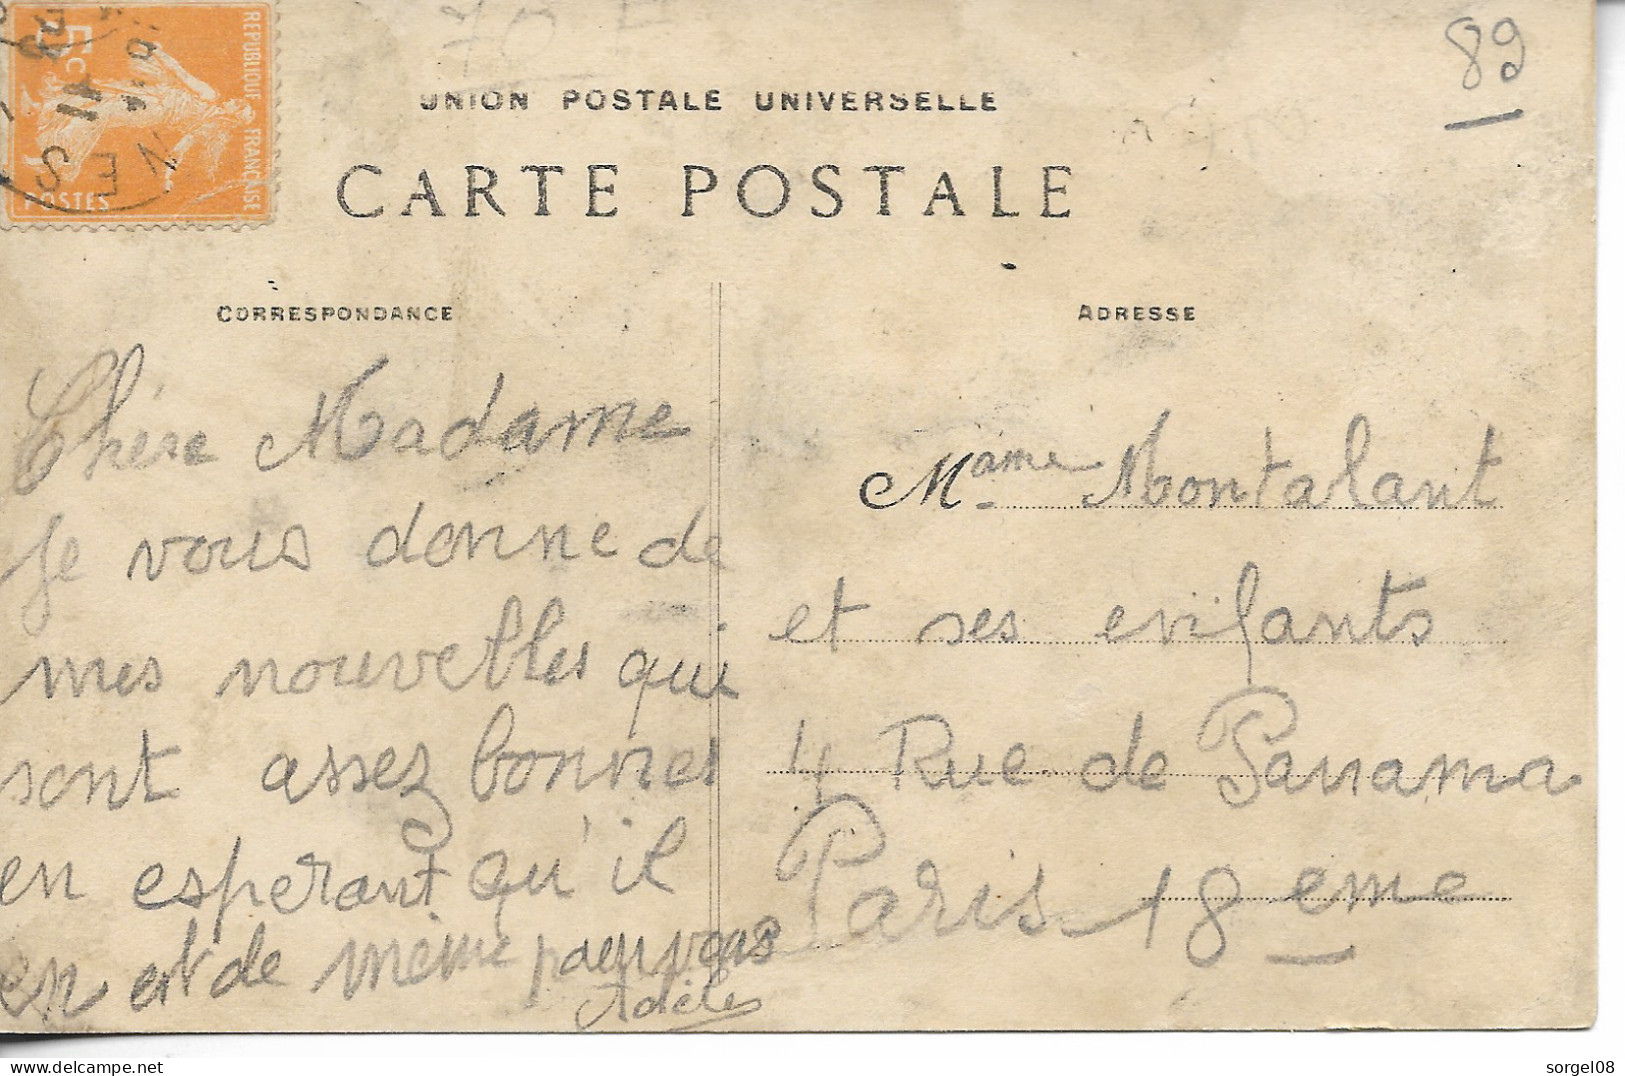 REPUBLIQUE FRANCAISE
5c
POSTES
89
UNION POSTALE UNIVERSELLE
CARTE POSTALE
CORRESPONDANCE
Chère Madame
je vous donne de
mes nouvelles qui
sont assez bonnes
en esperant qu'il
en est de même pour vous
Adèle
ADRESSE
Mame Montalant
et ses enfants
4 Rue de Panama
Paris 18 eme
sorgel08